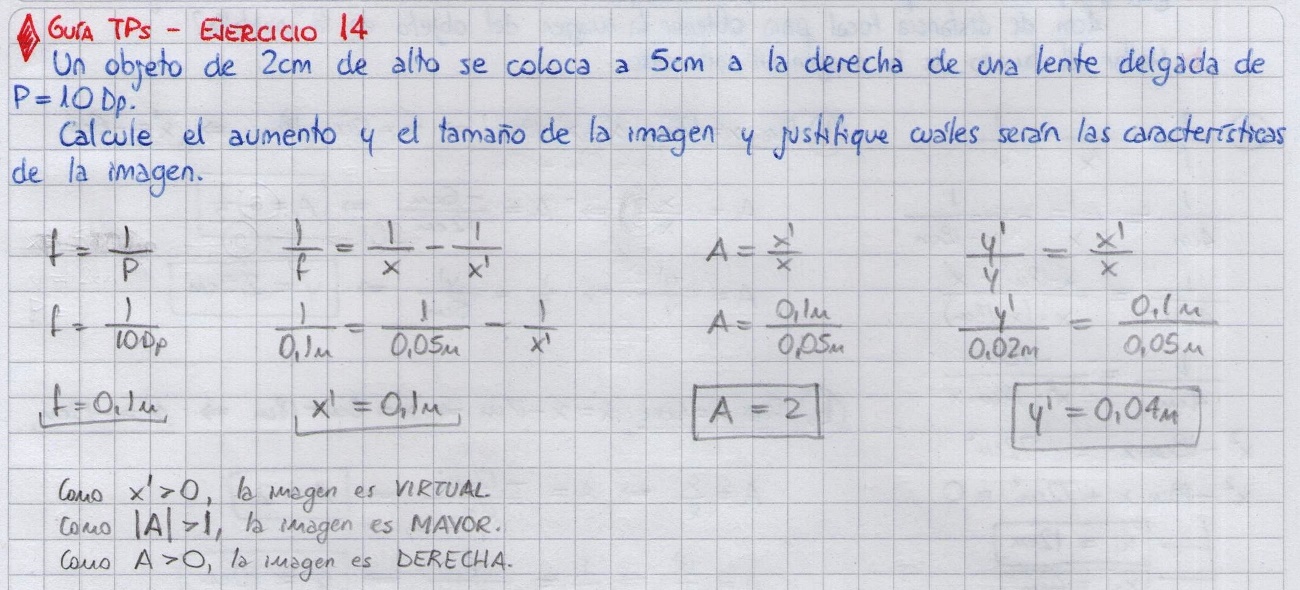 GUÍA TPs - EJERCICIO 14
Un objeto de 2cm de alto se coloca a 5cm a la derecha de una lente delgada de
P = 10 Dp.
Calcule el aumento y el tamaño de la imagen y justifique cuáles serán las características
de la imagen.
f = 1/P    1/f = 1/x - 1/x'    A = x'/x    y'/y = x'/x
f = 1/10Dp    1/0,1m = 1/0,05m - 1/x'    A = 0,1m/0,05m    y'/0,02m = 0,1m/0,05m
f = 0,1m    x' = 0,1m    A = 2    y' = 0,04m
Como x' > 0, la imagen es VIRTUAL.
Como |A| > 1, la imagen es MAYOR.
Como A > 0, la imagen es DERECHA.